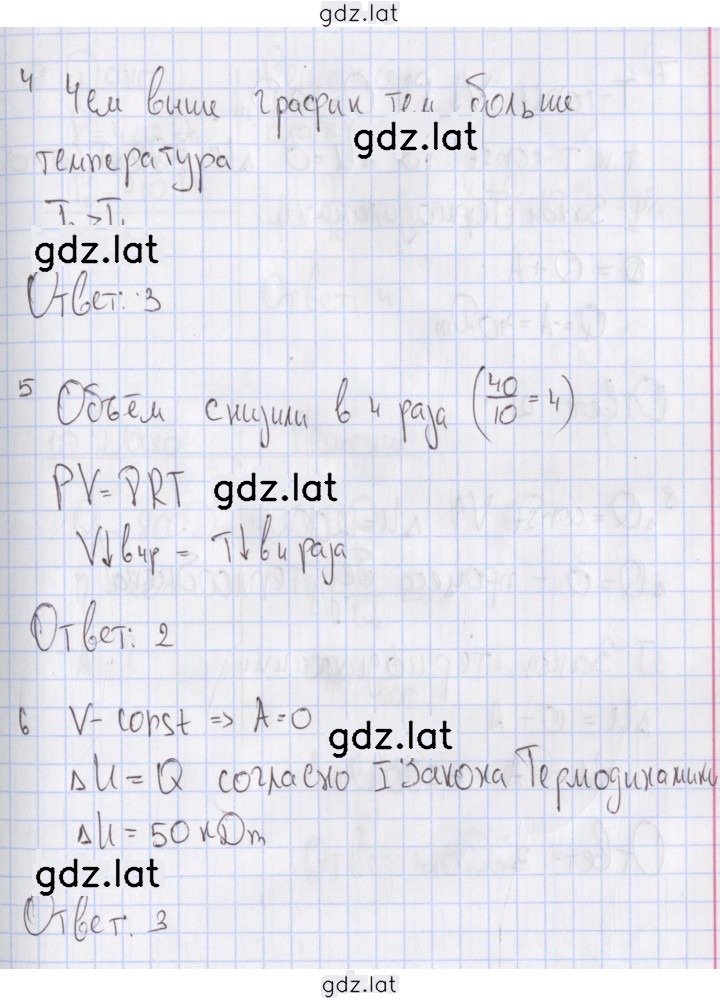 gdz.lat
4 Чем выше график тем больше
gdz.lat
температура
gdz.lat
Ответ: 3
5 Объём снизили в 4 раза (40/10 = 4)
PV = νRT gdz.lat
V↓в 4р = T↓в 4 раза
Ответ: 2
6 V - const => A = 0
gdz.lat
ΔU = Q согласно I закона Термодинамики
ΔU = 50 кДж
gdz.lat
Ответ: 3
gdz.lat